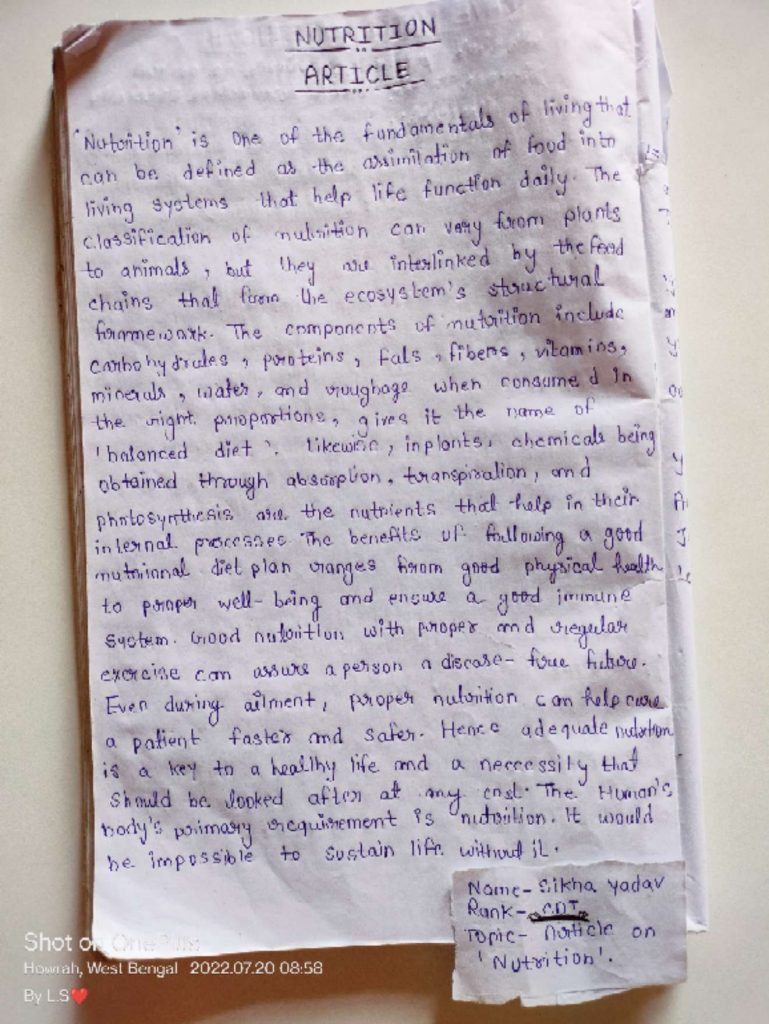 NUTRITION
ARTICLE
'Nutrition' is one of the fundamentals of living that
can be defined as the assimilation of food into
living systems that help life function daily. The
classification of nutrition can vary from plants
to animals, but they are interlinked by the food
chains that form the ecosystem's structural
framework. The components of nutrition include
carbohydrates, proteins, fats, fibers, vitamins,
minerals, water, and roughage when consumed in
the right proportions, gives it the name of
'balanced diet'. Likewise, in plants, chemicals being
obtained through absorption, transpiration, and
photosynthesis are the nutrients that help in their
internal processes The benefits of following a good
nutrional diet plan ranges from good physical health
to proper well-being and ensure a good immune
system. Good nutrition with proper and regular
exercise can assure a person a disease-free future.
Even during ailment, proper nutrition can help cure
a patient faster and safer. Hence adequate nutrition
is a key to a healthy life and a necessity that
should be looked after at any cost. The Human's
body's primary requirement is nutrition. It would
be impossible to sustain life without it.
Name- Sikha Yadav
Rank- CDT
Topic- Article on
'Nutrition'.
Shot on OnePlus
Howrah, West Bengal 2022.07.20 08:58
By L.S❤